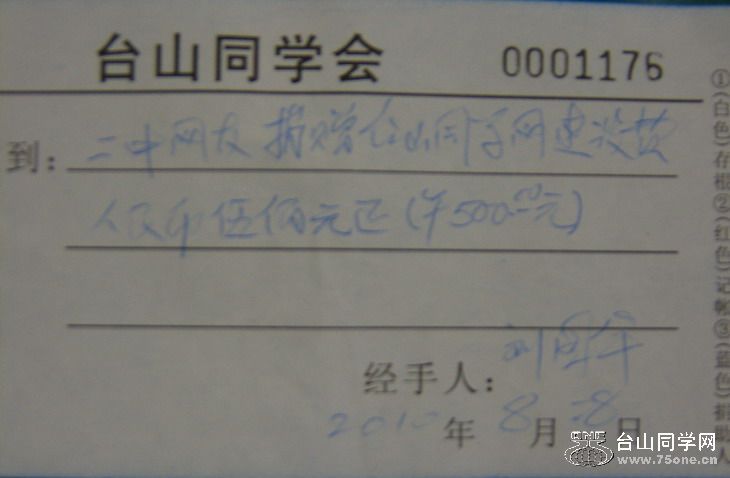 台山同学会 0001176
到: 二中网友 捐赠台山同学网建设费
人民币伍佰元正(¥500.00元)
经手人: 刘
2010年 8月 28日
①(白色)存根②(红色)记帐③(蓝色)捐助人
台山同学网
www.75one.cn